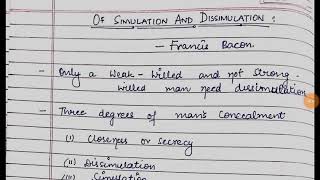 Of Simulation And Dissimulation :
— Francis Bacon.
- Only a Weak-Willed and not strong-
willed man need dissimulation
- Three degrees of man's Concealment
(i) Closeness or secrecy
(ii) Dissimulation
(iii) Simulation